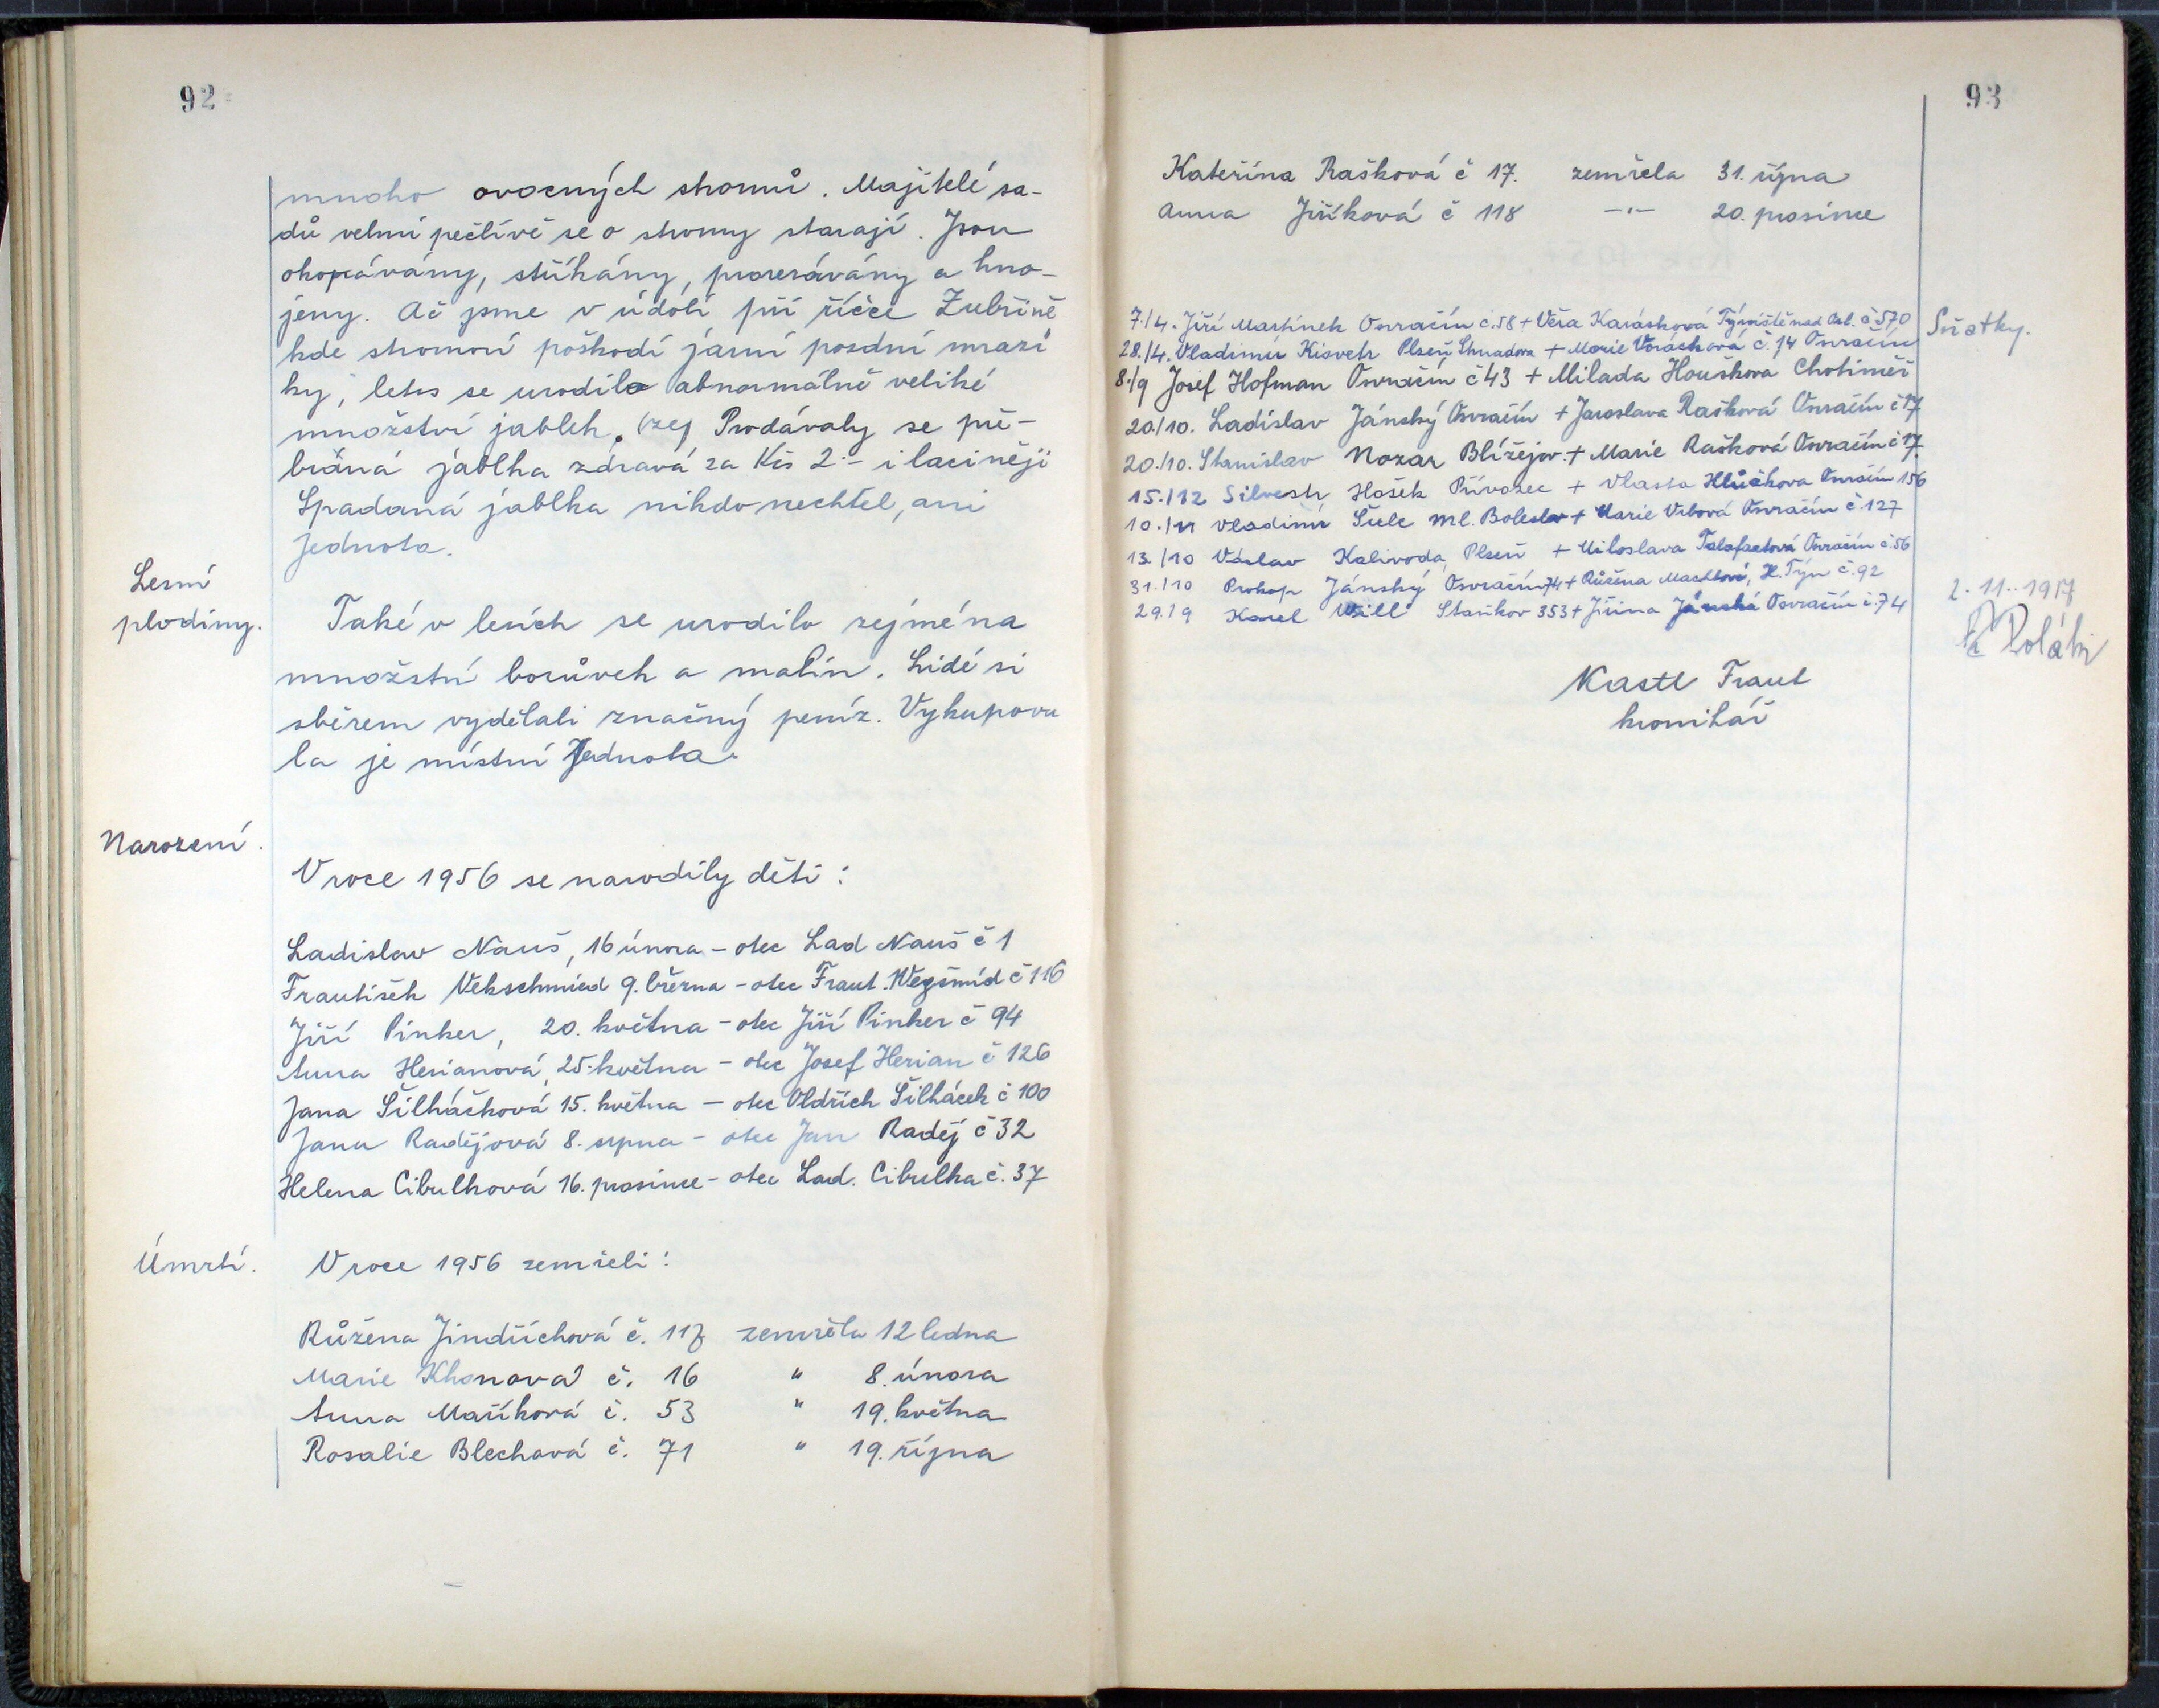 92
mnoho ovocných stromů. Majitelé sa-
dů velmi pečlivě se o stromy starají. Jsou
okopávány, stříkány, prořezávány a hno-
jeny. Ač jsme v údolí při říčce Zubřině
kde stromoví poškodí jarní pozdní mrazí
ky, letos se urodilo abnormálně veliké
množství jablek. Prodávaly se pře-
braná jablka zdravá za Kčs 2.- i laciněji
Spadaná jablka nikdo nechtěl, ani
Jednota.
Lesní
plodiny.
Také v lesích se urodilo zejména
množství borůvek a malin. Lidé si
sběrem vydělali značný peníz. Vykupova
la je místní Jednota.
Narození.
V roce 1956 se narodily děti:
Ladislav Nauš, 16 února - otec Lad Nauš č 1
František Vekschmied 9. března - otec Frant. Wegšmíd č 116
Jiří Pinker, 20. května - otec Jiří Pinker č 94
Anna Herianová, 25. května - otec Josef Herian č 126
Jana Šilháčková 15. května - otec Oldřich Šilháček č 100
Jana Radějová 8. srpna - otec Jan Raděj č 32
Helena Cibulková 16. prosince - otec Lad. Cibulka č. 37
Úmrtí.
V roce 1956 zemřeli:
Růžena Jindřichová č. 117 zemřela 12 ledna
Marie Khonová č. 16 " 8. února
Anna Maříková č. 53 " 19. května
Rosalie Blechová č. 71 " 19. října
93
Kateřina Rašková č 17. zemřela 31. října
Anna Jiříková č 118 -"- 20. prosince
Sňatky.
7./4. Jiří Martínek Osvračín č. 58 + Věra Karásková Týniště nad Orl. č 570
28./4. Vladimír Kisvetr Plzeň + Marie Voráčková č. 14 Osvračín
8./9 Josef Hofman Osvračín č 43 + Milada Houškova Chotiměř
20./10. Ladislav Jánský Osvračín + Jaroslava Rašková Osvračín č 17
20./10. Stanislav Nozar Blížejov + Marie Rašková Osvračín č 17.
15./12 Silvestr Hošek Přívozec + Vlasta Hlůčkova Osvračín 156
10./11 Vladimír Šulc Ml. Boleslav + Marie Vrbová Osvračín č. 127
13./10 Václav Kalivoda, Plzeň + Miloslava Talafantová Osvračín č. 56
31./10 Prokop Jánský Osvračín 74 + Růžena Machtová, H. Týn č. 92
29./9 Karel Will Staňkov 353 + Jiřina Jánská Osvračín č. 74
2. 11. 1957
Kastl Frant
kronikář